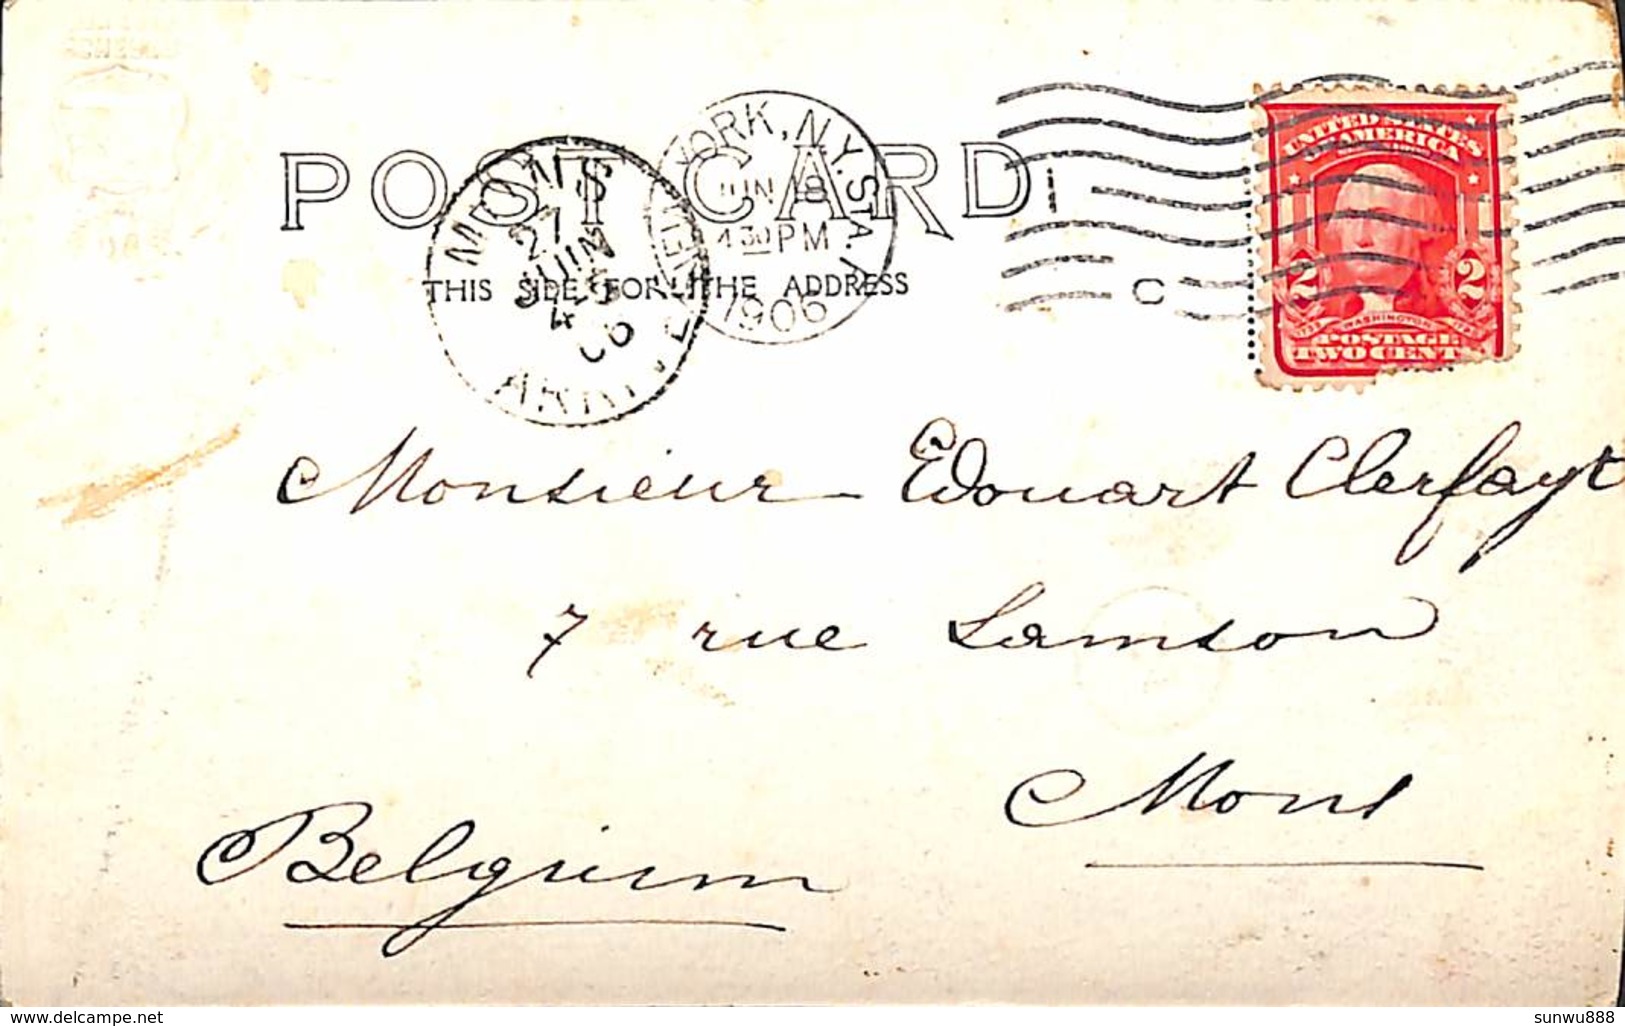 POST CARD
THIS SIDE FOR THE ADDRESS
MONS
27
JUIN
4
06
NEW YORK, N.Y. STA. A
JUN 18
430 PM
1906
C
UNITED STATES
OF AMERICA
2 2
1732 WASHINGTON 1799
POSTAGE
TWO CENTS
Monsieur Edouart Clerfayt
7 rue Lamson
Mons
Belgium
www.delcampe.net
sunwu888